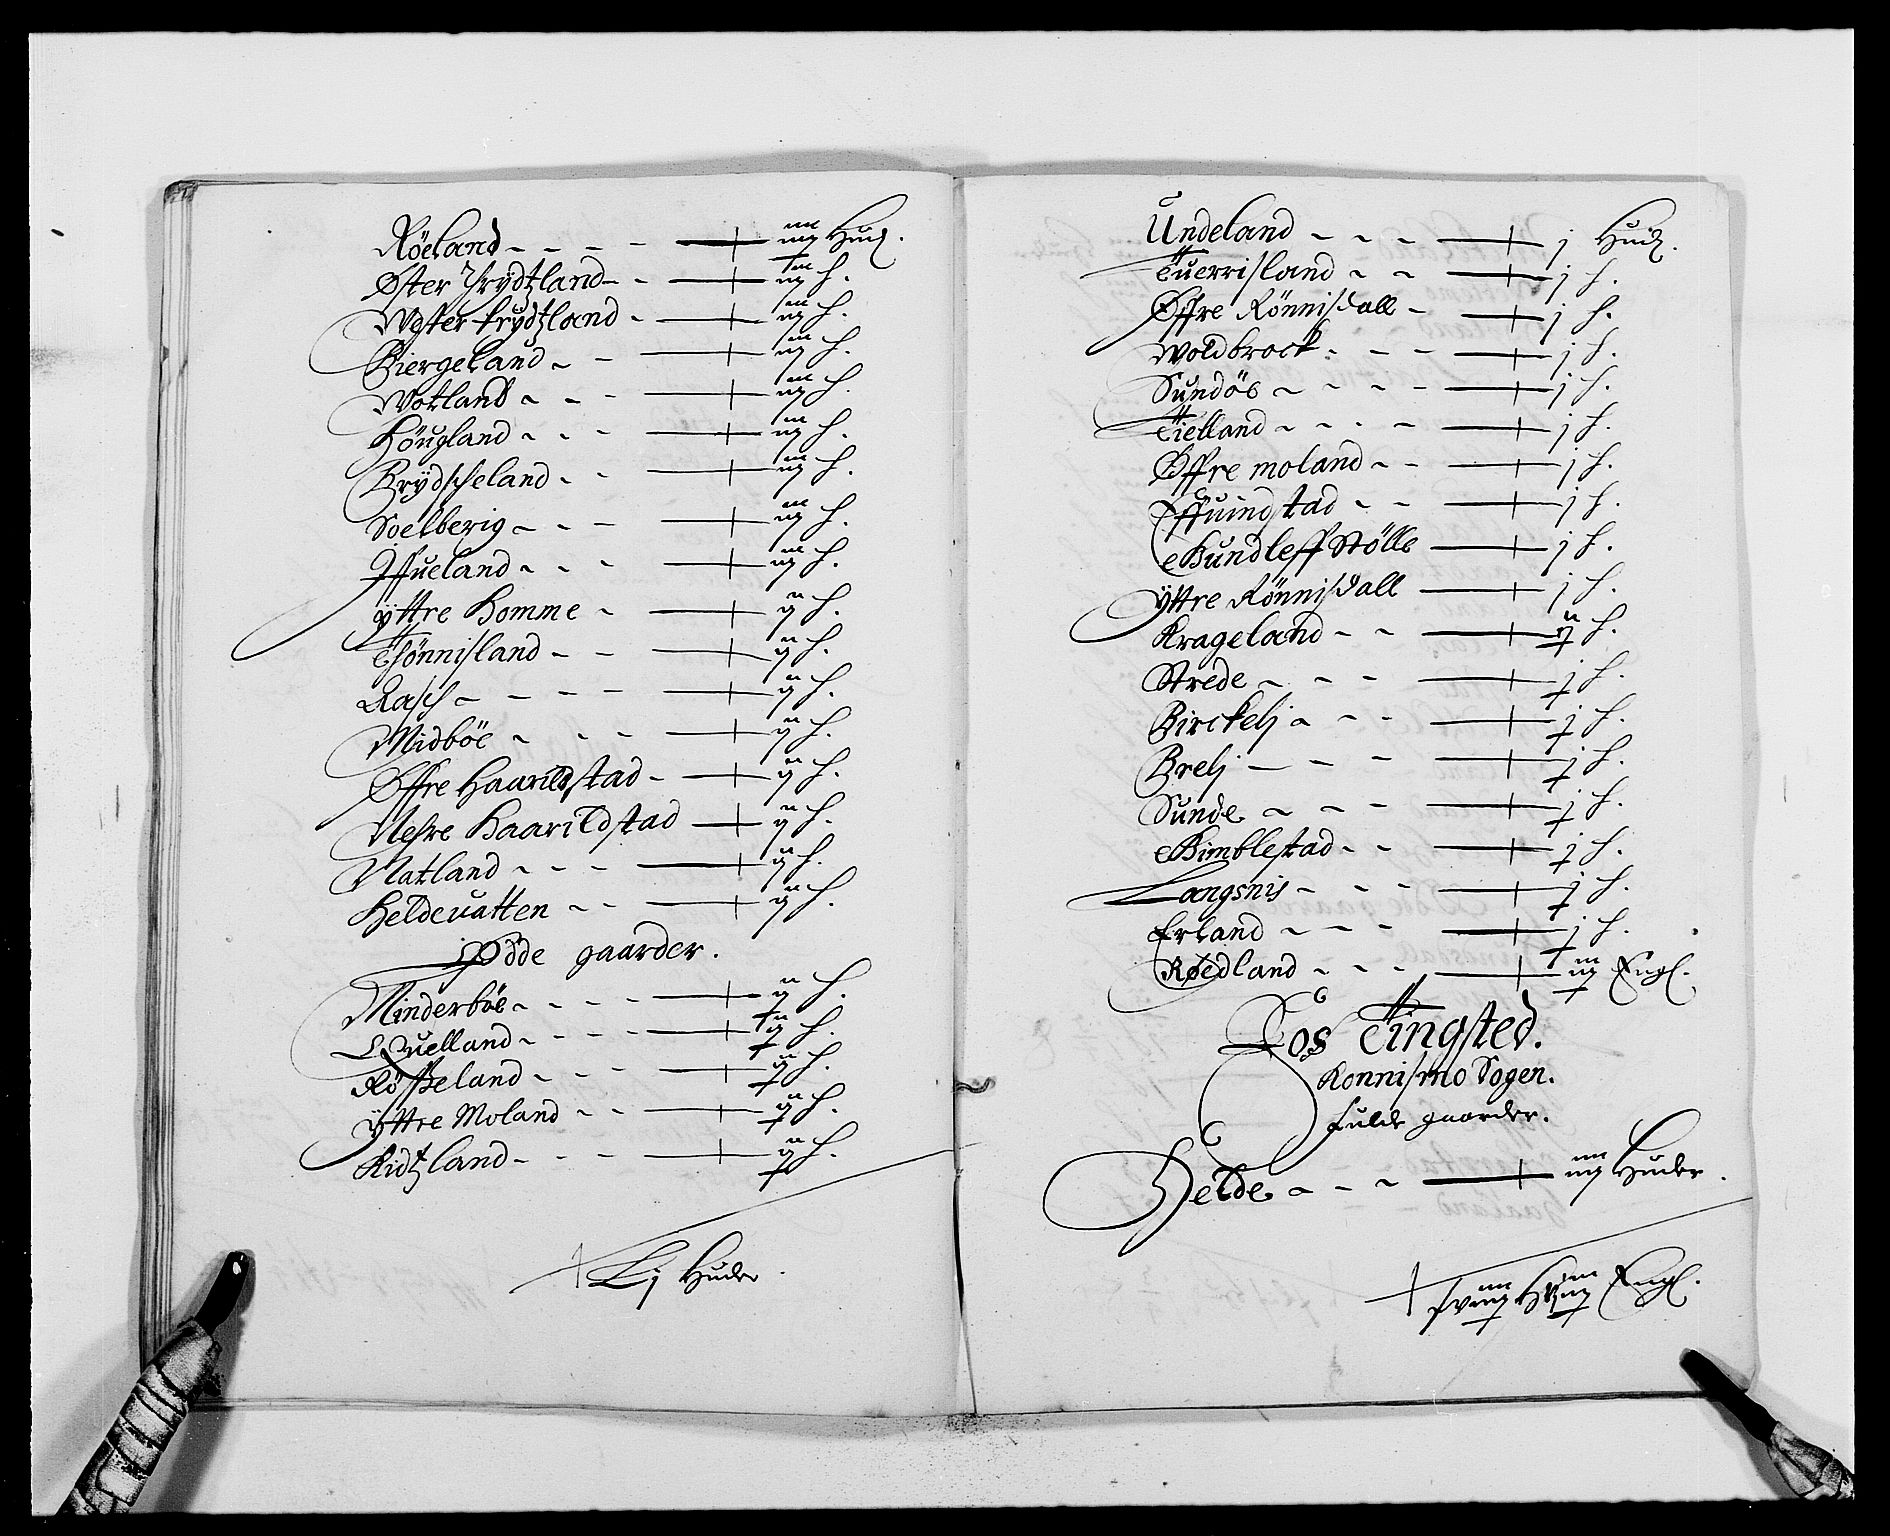 Röeland - - - - — iij Hud.
Øster Frydtzland - - — iij h.
Wester frydtzland - — iij h.
Biergeland - - — iij h.
Wotland - - - — iij h.
Höugland - - - — iij h.
Brydscheland - - — iij h.
Soelberig - - - — iij h.
Iffueland - - - — iij h.
yttre Homme - — ij h.
Tönnisland - - — ij h.
Aasch - - - - — ij h.
Midböe - - - — ij h.
Øffre Haarildstad - — ij h.
Nefre Haarildstad — ij h.
Natland - - - — ij h.
Heldeuatten - - — ij h.
Øde gaarder.
Minderböe - - - - — ij h.
Quelland - - - - — ij h.
Rösseland - - - — ij h.
yttre Moland - - — ij h.
Ridtzland - - - — ij h.
Lj Huder.
Undeland - - - — j Hud.
Tuerrisland - - — j h.
Øffre Rönnisdall - — j h.
Woldbrock - - - — j h.
Sundöe - - - - — j h.
Tielland - - - - — j h.
Øffre moland - - — j h.
Effuindstad - - — j h.
Gundleff Stölle — j h.
yttre Rönnisdall — j h.
Krageland - - — ij h.
Strede - - - — j h.
Birckelj - - - — j h.
Brelj - - - — j h.
Sunde - - - — j h.
Gimblestad - - — j h.
Langsnis - - - — j h.
Erland - - - — j h.
Røedland - - - — iij Engl.
Fos Tingsted.
Konnismo Sogen.
fulde gaarder.
Helde - - - — iij Huder.
iij Engl.